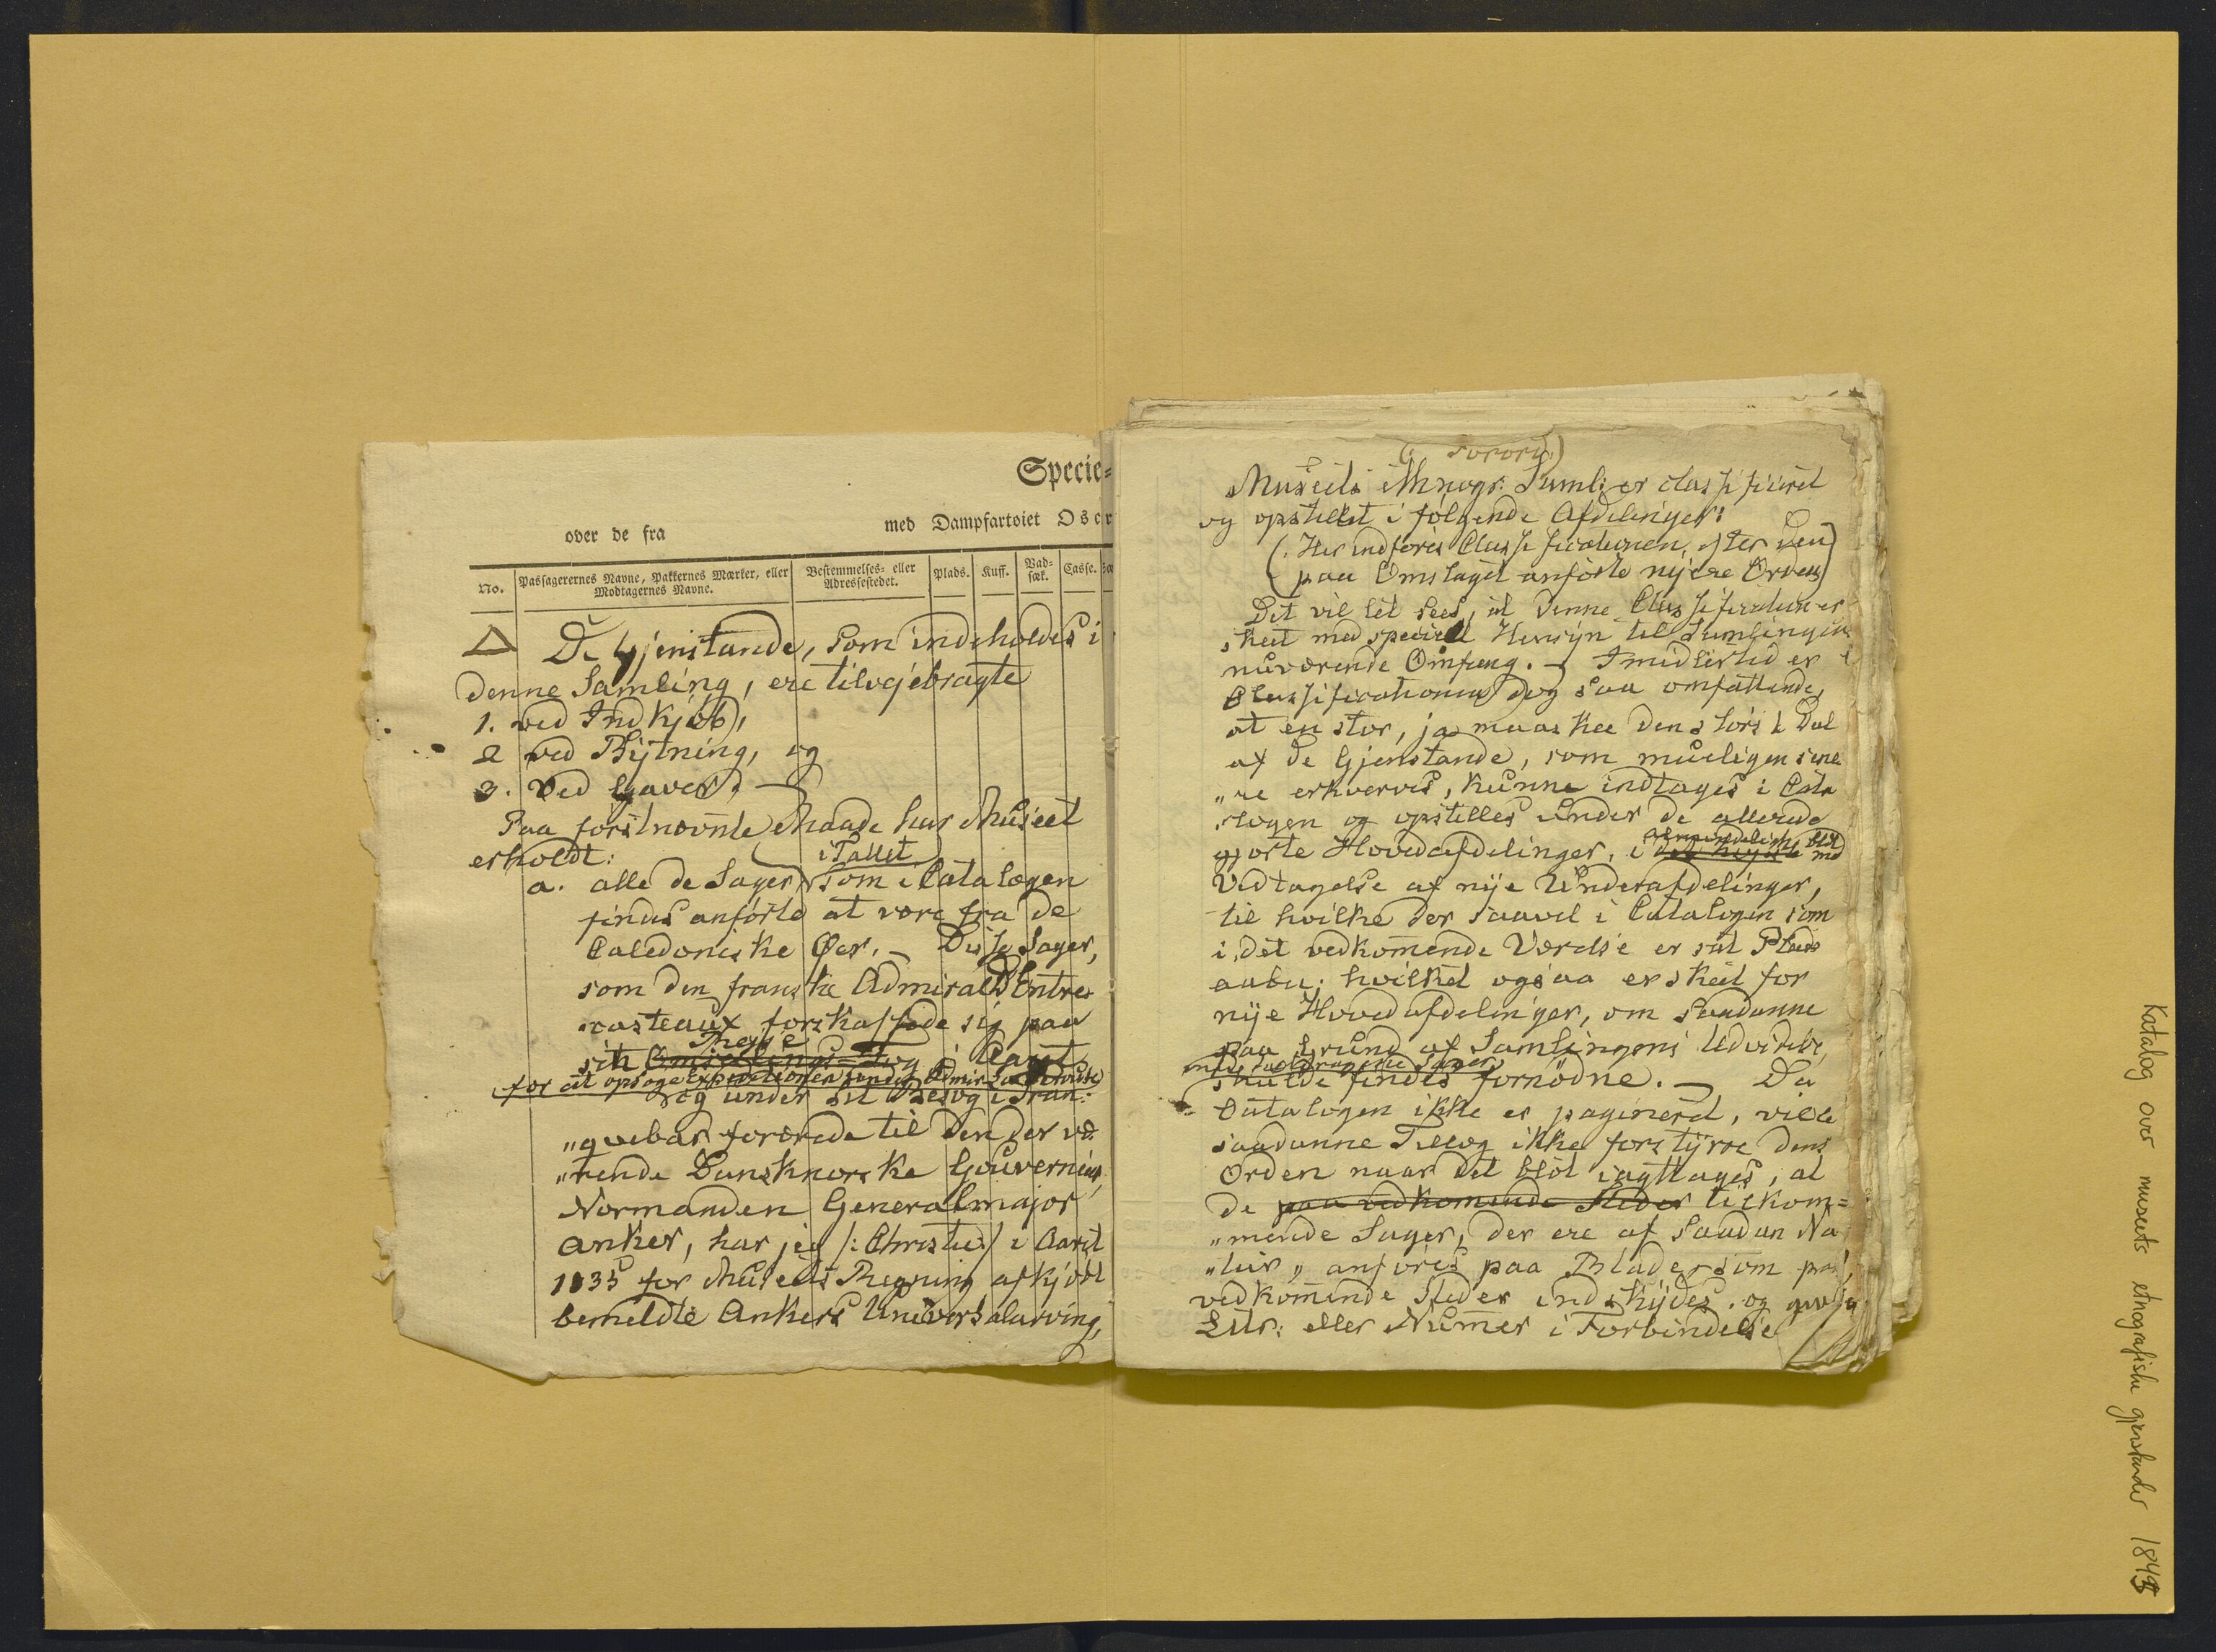 Specie=
over de fra med Dampfartoiet Oscr
No. Passagerernes Navne, Pakkernes Mærker, eller Modtagernes Navne. Bestemmelses= eller Adressestedet. Plads. Kuff. Vad-sæk. Casse.
De Gjenstande, som indeholdes i
denne Samling, ere tilvejebragte
1. ved Indkjøb,
2 ved Bytning, og
3. ved Gaver. —
Paa förstnævnte Maade har Museet
erholdt: i Tallet
a. alle de Sager, som i Catalogen
findes anförte at være fra de
Caledoniske Øer. — Disse Sager,
som den franske Admiral D'Entre-
casteaux forskaffede sig paa
Rejse
sin Tog i Aaret
for at opsøge Expeditionen under Admir:
og under sit Besög i Tran-
„quebar forærede til den der væ-
„rende Dansknorske Gouverneur,
Normanden Generalmajor
Anker, har jeg /: Christie :/ i Aaret
1835 for Museets Regning afkjøbt
bemeldte Ankers Universalarving,
(: Forord :)
Museets ethnogr: Saml: er classificeret
og opstillet i fölgende Afdelinger:
(: Her indføres Classificationen, efter den
paa Omslaget anförte nyere Orden)
Det vil let sees, at denne Classification er
skeet med speciell Hensyn til Samlingens
nuværende Omfang. — Imidlertid er
Classificationen dog saa omfattende,
at en stor, ja maaskee den störste Del
af de Gjenstande, som mueligen sene
„re erhverves, kunne indtages i Cata
„logen og opstilles under de allerede
almindelighed blot
gjorte Hovedafdelinger, i med
Vedtagelse af nye Underafdelinger,
til hvilke der saavel i Catalogen som
i det vedkomende Værelse er sat Plads
aaben; hvilket ogsaa er skeet for
nye Hovedafdelinger, om saadanne
paa Grund af Samlingens Udvidelse
skulde findes fornödne. — Da
Catalogen ikke er pagineret, ville
saadanne Tillæg ikke forstyrre dens
Orden naar det blot iagttages, at
de paa vedkomende Steder tilkom=
„mende Sager, der ere af saadan Na
„tur, anføres paa Blade som paa
vedkomende Steder indskydes, og
Litr: eller Numer i Forbindelse
Katalog over museets etnografiske gjenstander 1843